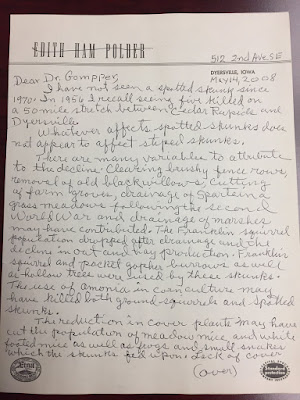 EDITH HAM POLDER
512 2nd Ave SE
DYERSVILLE, IOWA
May 14, 2008
Dear Dr. Gompper,
I have not seen a spotted skunk since
1970. In 1954 I recall seeing five killed on
a 50 mile stretch between Cedar Rapids and
Dyersville.
Whatever affects spotted skunks does
not appear to affect striped skunks.
There are many variables to attribute
to this decline. Clearing brushy fence rows,
removal of old black willows, cutting
of farm groves, drainage of Spartina
grass meadows following the second
World War and drainage of marshes
may have contributed. The Franklin squirrel
population dropped after drainage and the
decline in oat and hay production. Franklin
squirrel and pocket gopher burrows as well
as hollow trees were used by these skunks.
The use of amonia in corn culture may
have killed both ground squirrels and spotted
skunks.
The reduction in cover plants may have
cut the population of meadow mice, and white
footed mice as well as frogs and small snakes
which the skunks fed upon. Lack of cover
(over)